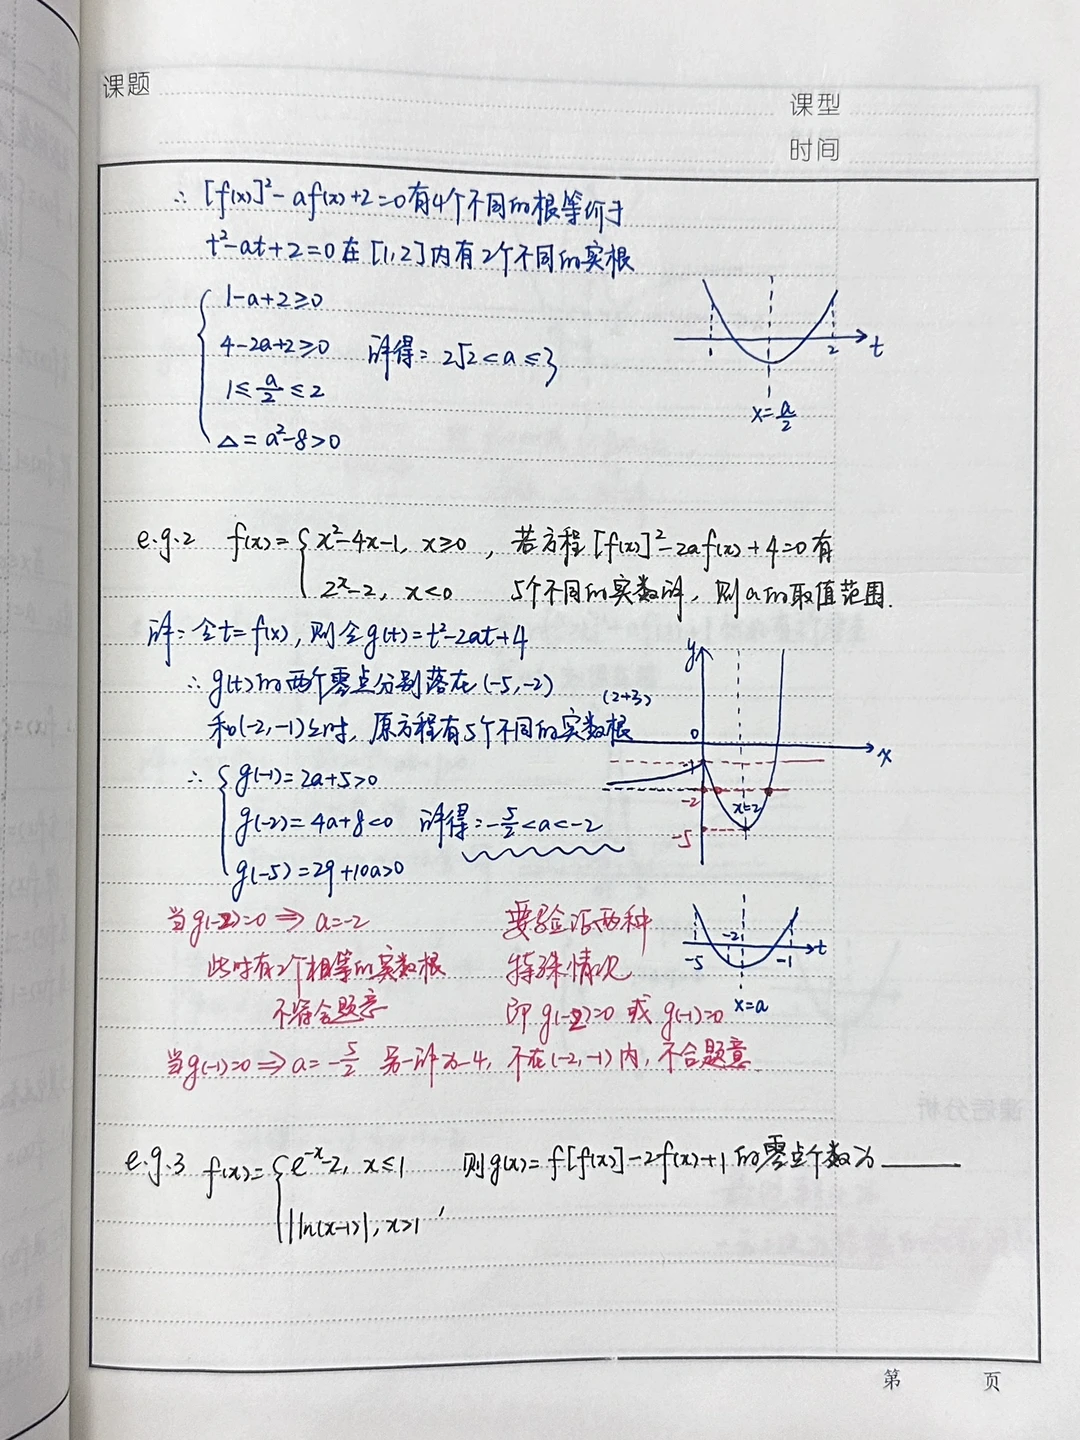 课题
课型
时间
∴ [f(x)]²-af(x)+2=0有4个不同的根等价于
t²-at+2=0在[1,2]内有2个不同的实根
1-a+2≥0
4-2a+2≥0 解得: 2√2<a≤3
1≤a/2≤2
△=a²-8>0
1 2 t
x=a/2
e.g.2 f(x)={x²-4x-1, x≥0 , 若方程[f(x)]²-2af(x)+4=0有
2ˣ-2, x<0 5个不同的实数解, 则a的取值范围.
解: 令t=f(x), 则令g(t)=t²-2at+4
∴ g(t)的两个零点分别落在(-5,-2) (2+3)
和(-2,-1)上时, 原方程有5个不同的实数根
∴ {g(-1)=2a+5>0
g(-2)=4a+8<0 解得: -5/2<a<-2
g(-5)=29+10a>0
y
0 x
-1
-2 x=2
-5
当g(-2)=0 ⇒ a=-2 要验证两种
此时有2个相等的实数根 特殊情况
不符合题意 即g(-2)=0 或 g(-1)=0
-5 -2 -1 t
x=a
当g(-1)=0 ⇒ a=-5/2 另一解为-4, 不在(-2,-1)内, 不合题意
e.g.3 f(x)={e⁻ˣ-2, x≤1 则g(x)=f[f(x)]-2f(x)+1的零点个数为______
|ln(x-1)|, x>1 ,
第 页